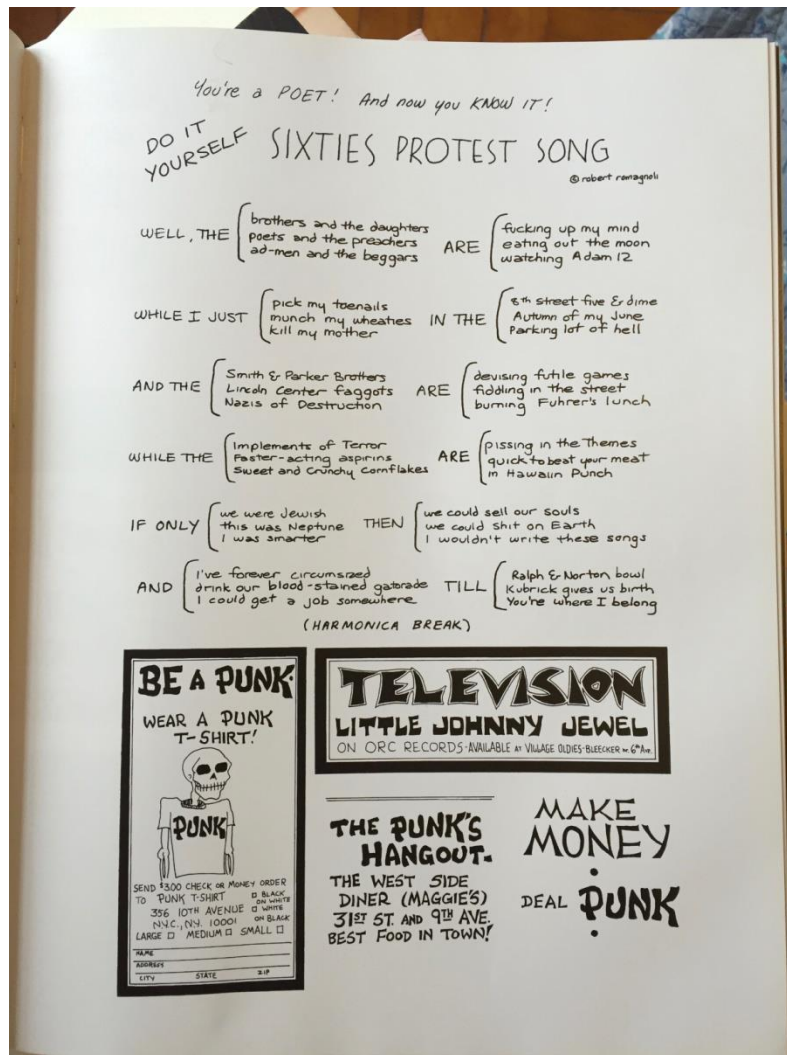 You're a POET! And now you KNOW IT!
DO IT
YOURSELF
SIXTIES PROTEST SONG
© robert romagnoli
brothers and the daughters
WELL, THE poets and the preachers ARE
ad-men and the beggars
fucking up my mind
eating out the moon
watching Adam 12
pick my toenails
WHILE I JUST munch my wheaties IN THE
kill my mother
8th street five & dime
Autumn of my June
Parking lot of hell
Smith & Parker Brothers
AND THE Lincoln Center faggots ARE
Nazis of Destruction
devising futile games
fiddling in the street
burning Fuhrer's lunch
Implements of Terror
WHILE THE Faster-acting aspirins ARE
Sweet and Crunchy Cornflakes
pissing in the Themes
quick to beat your meat
in Hawaiin Punch
we were Jewish
IF ONLY this was Neptune THEN
I was smarter
we could sell our souls
we could shit on Earth
I wouldn't write these songs
I've forever circumsized
AND drink our blood-stained gatorade TILL
I could get a job somewhere
Ralph & Norton bowl
Kubrick gives us birth
You're where I belong
(HARMONICA BREAK)
BE A PUNK.
WEAR A PUNK
T-SHIRT!
PUNK
SEND $3.00 CHECK OR MONEY ORDER
TO PUNK T-SHIRT
356 10TH AVENUE
N.Y.C., N.Y. 10001
□ BLACK
ON WHITE
□ WHITE
ON BLACK
LARGE □ MEDIUM □ SMALL □
NAME
ADDRESS
CITY STATE ZIP
TELEVISION
LITTLE JOHNNY JEWEL
ON ORC RECORDS·AVAILABLE AT VILLAGE OLDIES-BLEECKER nr. 6th Ave.
THE PUNK'S
HANGOUT.
THE WEST SIDE
DINER (MAGGIE'S)
31ST ST. AND 9TH AVE.
BEST FOOD IN TOWN!
MAKE
MONEY
DEAL PUNK